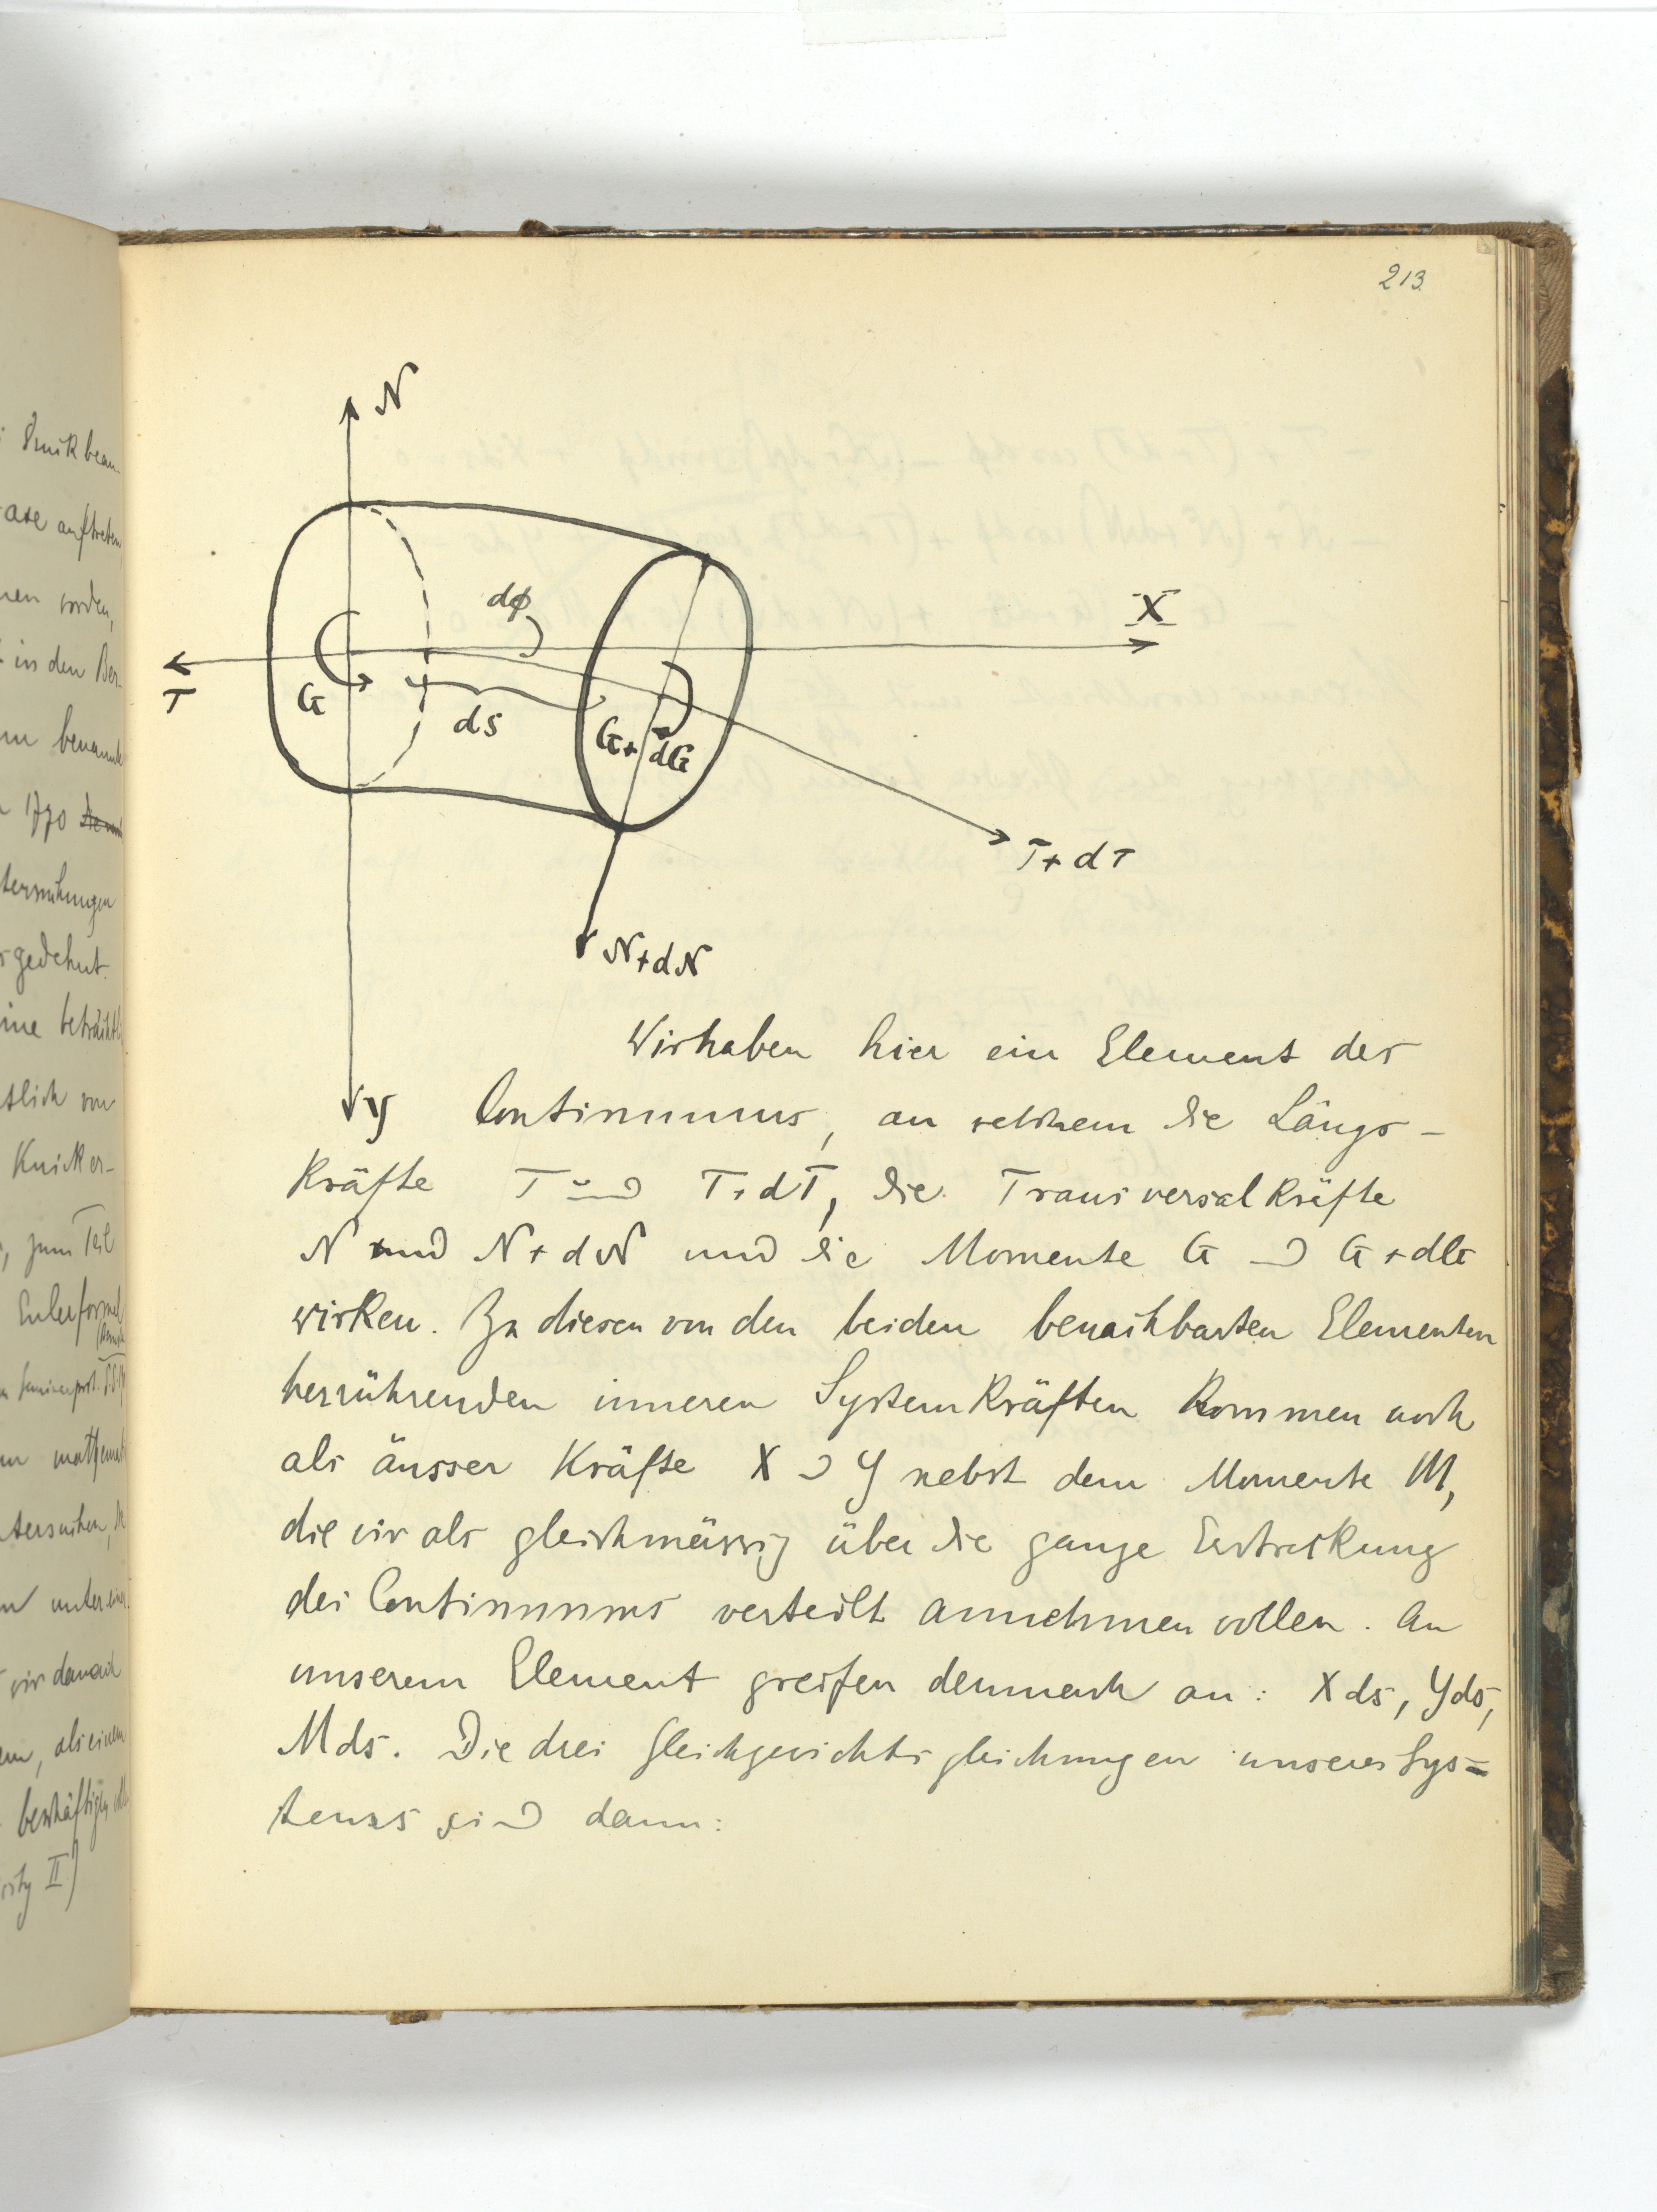 213.
N
dφ
X
T
G
ds
G+dG
T+dT
N+dN
Wir haben hier ein Element des
y Continuums, an welchem die Längs-
kräfte T und T+dT, die Transversalkräfte
N und N+dN und die Momente G und G+dG
wirken. Zu diesen von den beiden benachbarten Elementen
herrührenden inneren Systemkräften kommen noch
als äusser Kräfte X und Y nebst dem Momente M,
die wir als gleichmässig über die ganze Erstreckung
des Continuums verteilt annehmen wollen. An
unserem Element greifen demnach an: Xds, Yds,
Mds. Die drei Gleichgewichtsgleichungen unseres Sys=
tems sind dann:
auftreten
worden,
in den
1770
gedehnt.
ine
von
Knicker-
, zum Teil
Eulerformel
wir danach
als einem
II)